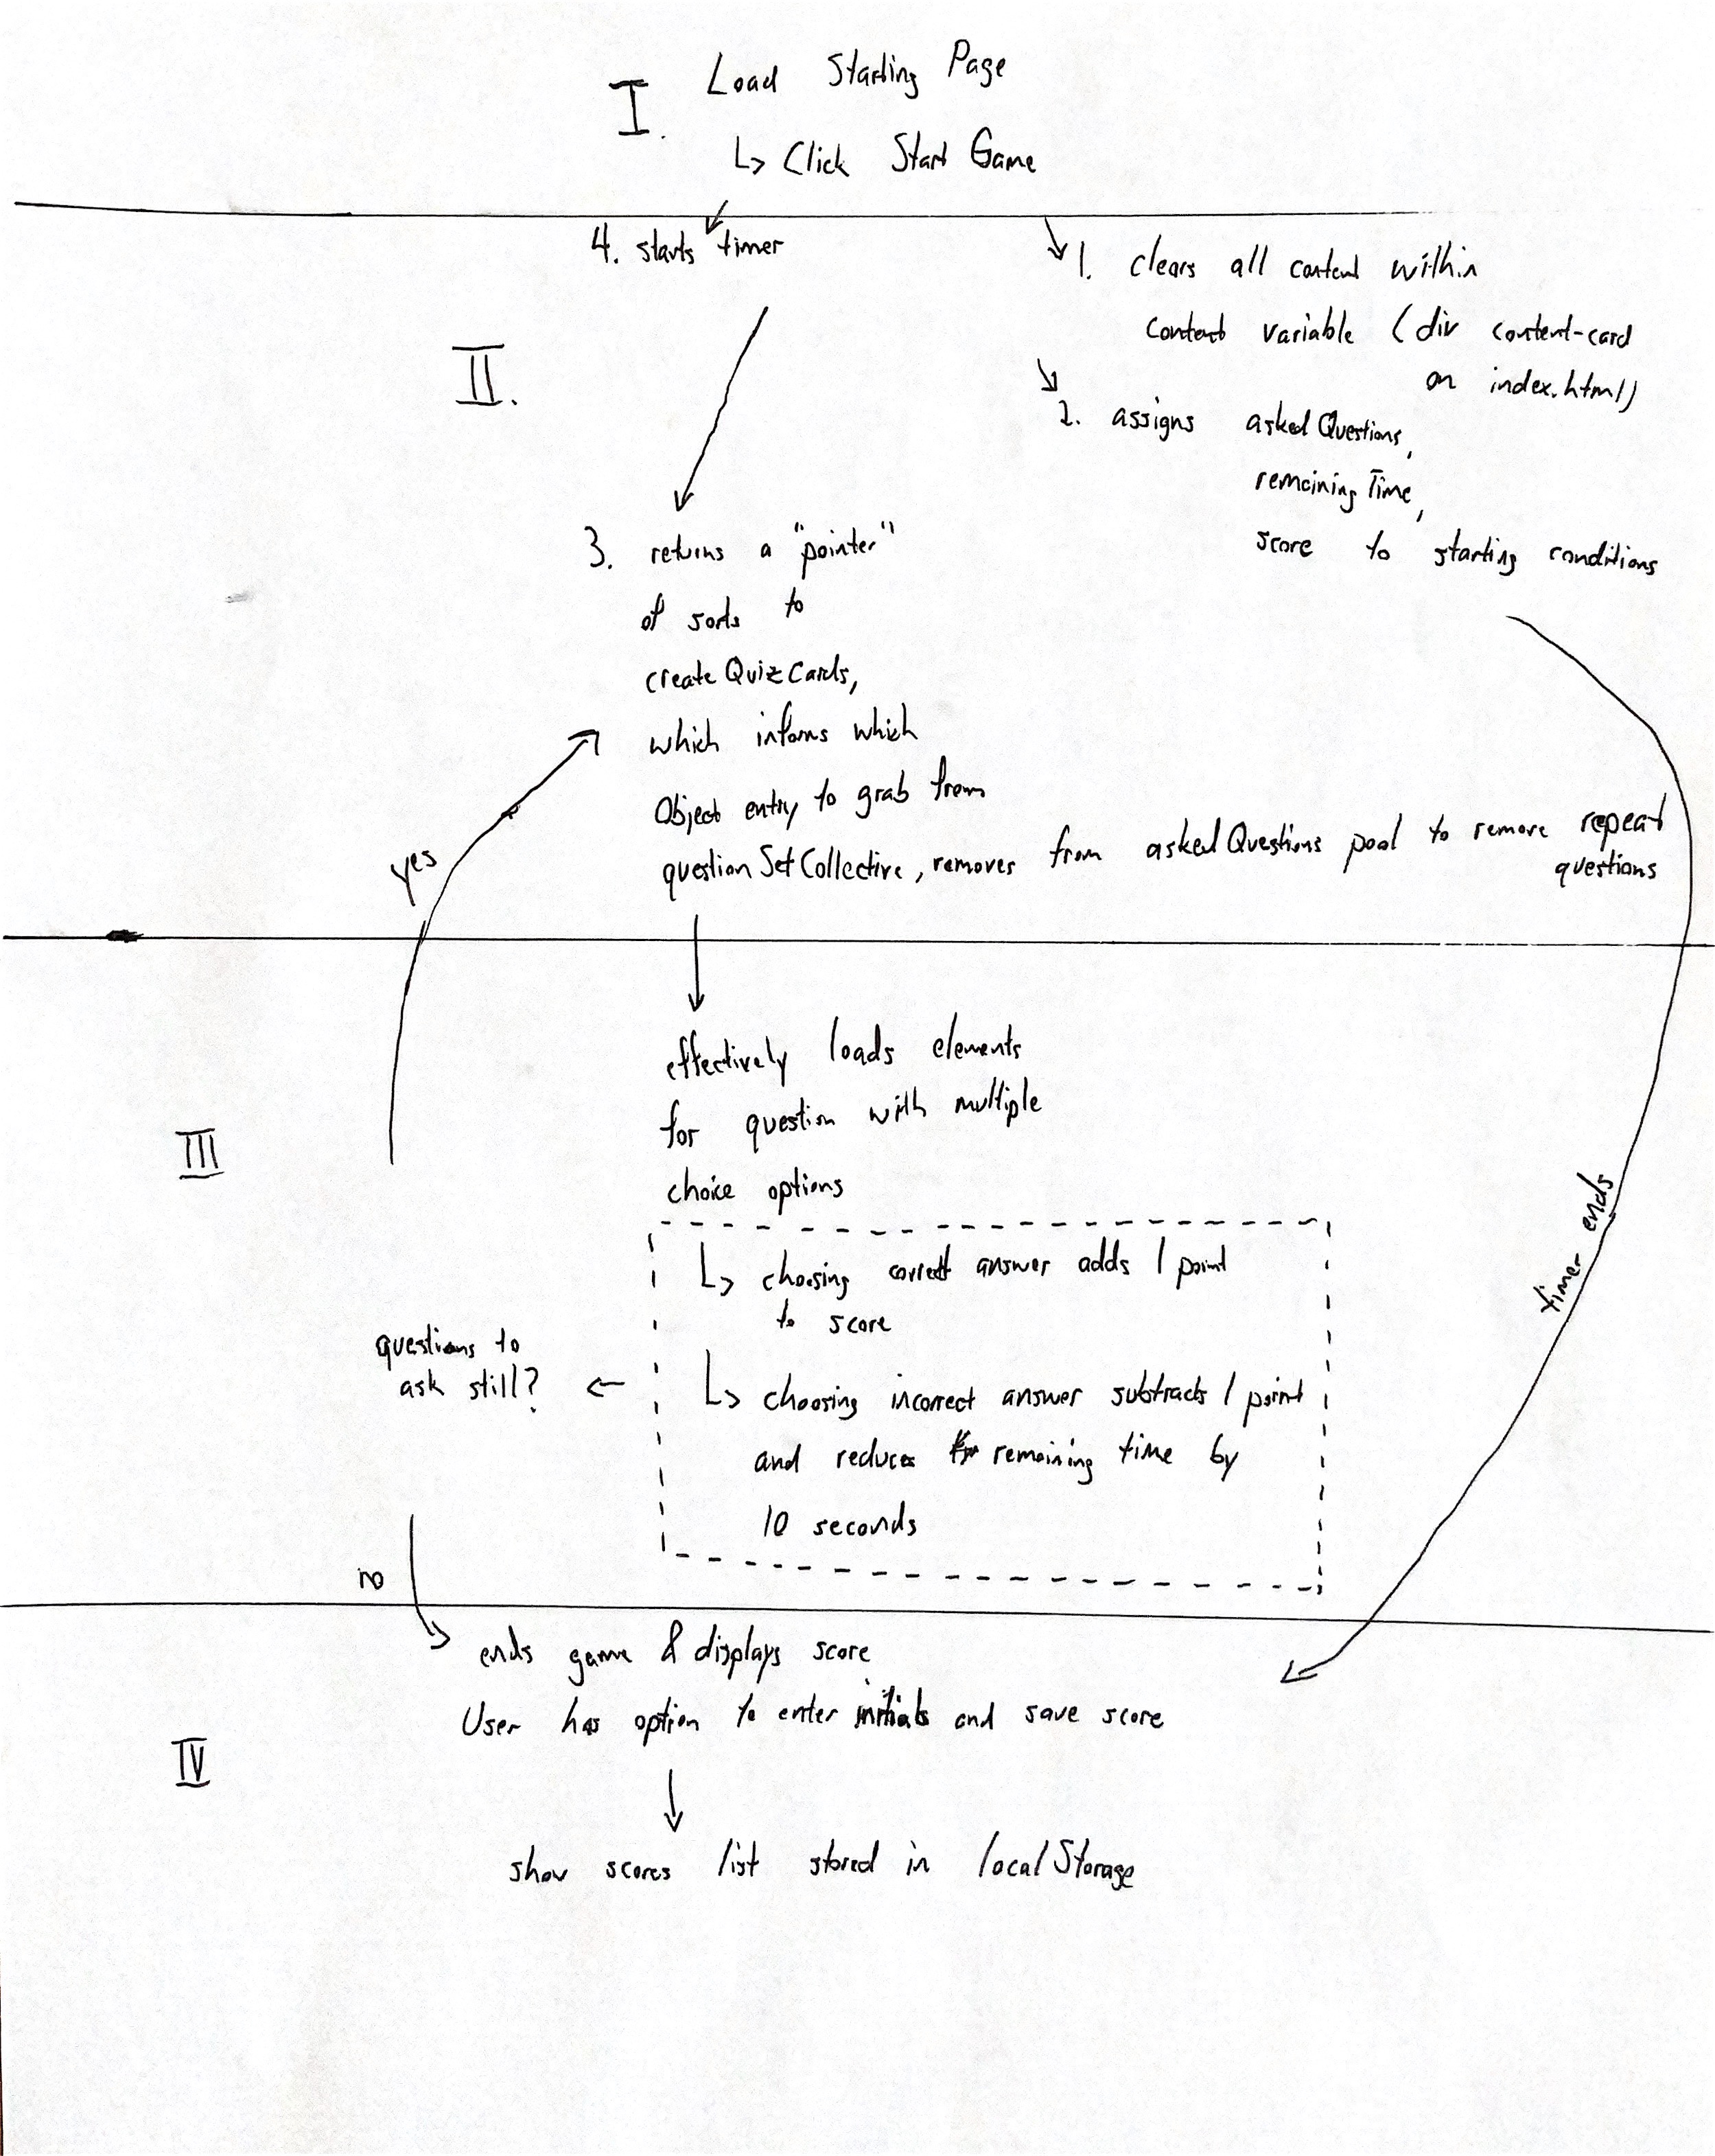 I. Load Starting Page
↳ Click Start Game
II.
4. starts timer
1. clears all content within
content variable (div content-card
on index.html)
2. assigns askedQuestions,
remainingTime,
score to starting conditions
3. returns a "pointer"
of sorts to
createQuizCards,
which informs which
Object entry to grab from
questionSetCollective, removes from askedQuestions pool to remove repeat
questions
yes
III
effectively loads elements
for question with multiple
choice options
↳ choosing correct answer adds 1 point
to score
↳ choosing incorrect answer subtracts 1 point
and reduces remaining time by
10 seconds
questions to
ask still?
timer ends
no
IV
ends game & displays score
User has option to enter initials and save score
show scores list stored in localStorage